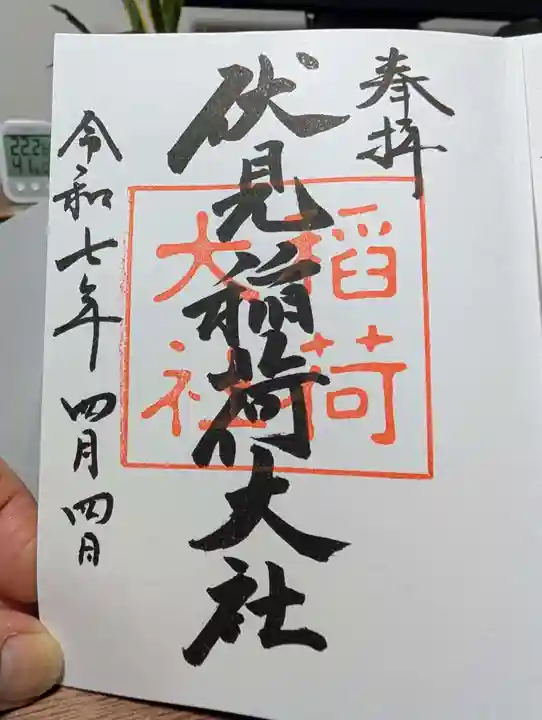 奉拝
伏見稲荷大社
稲荷
大社
令和七年四月四日